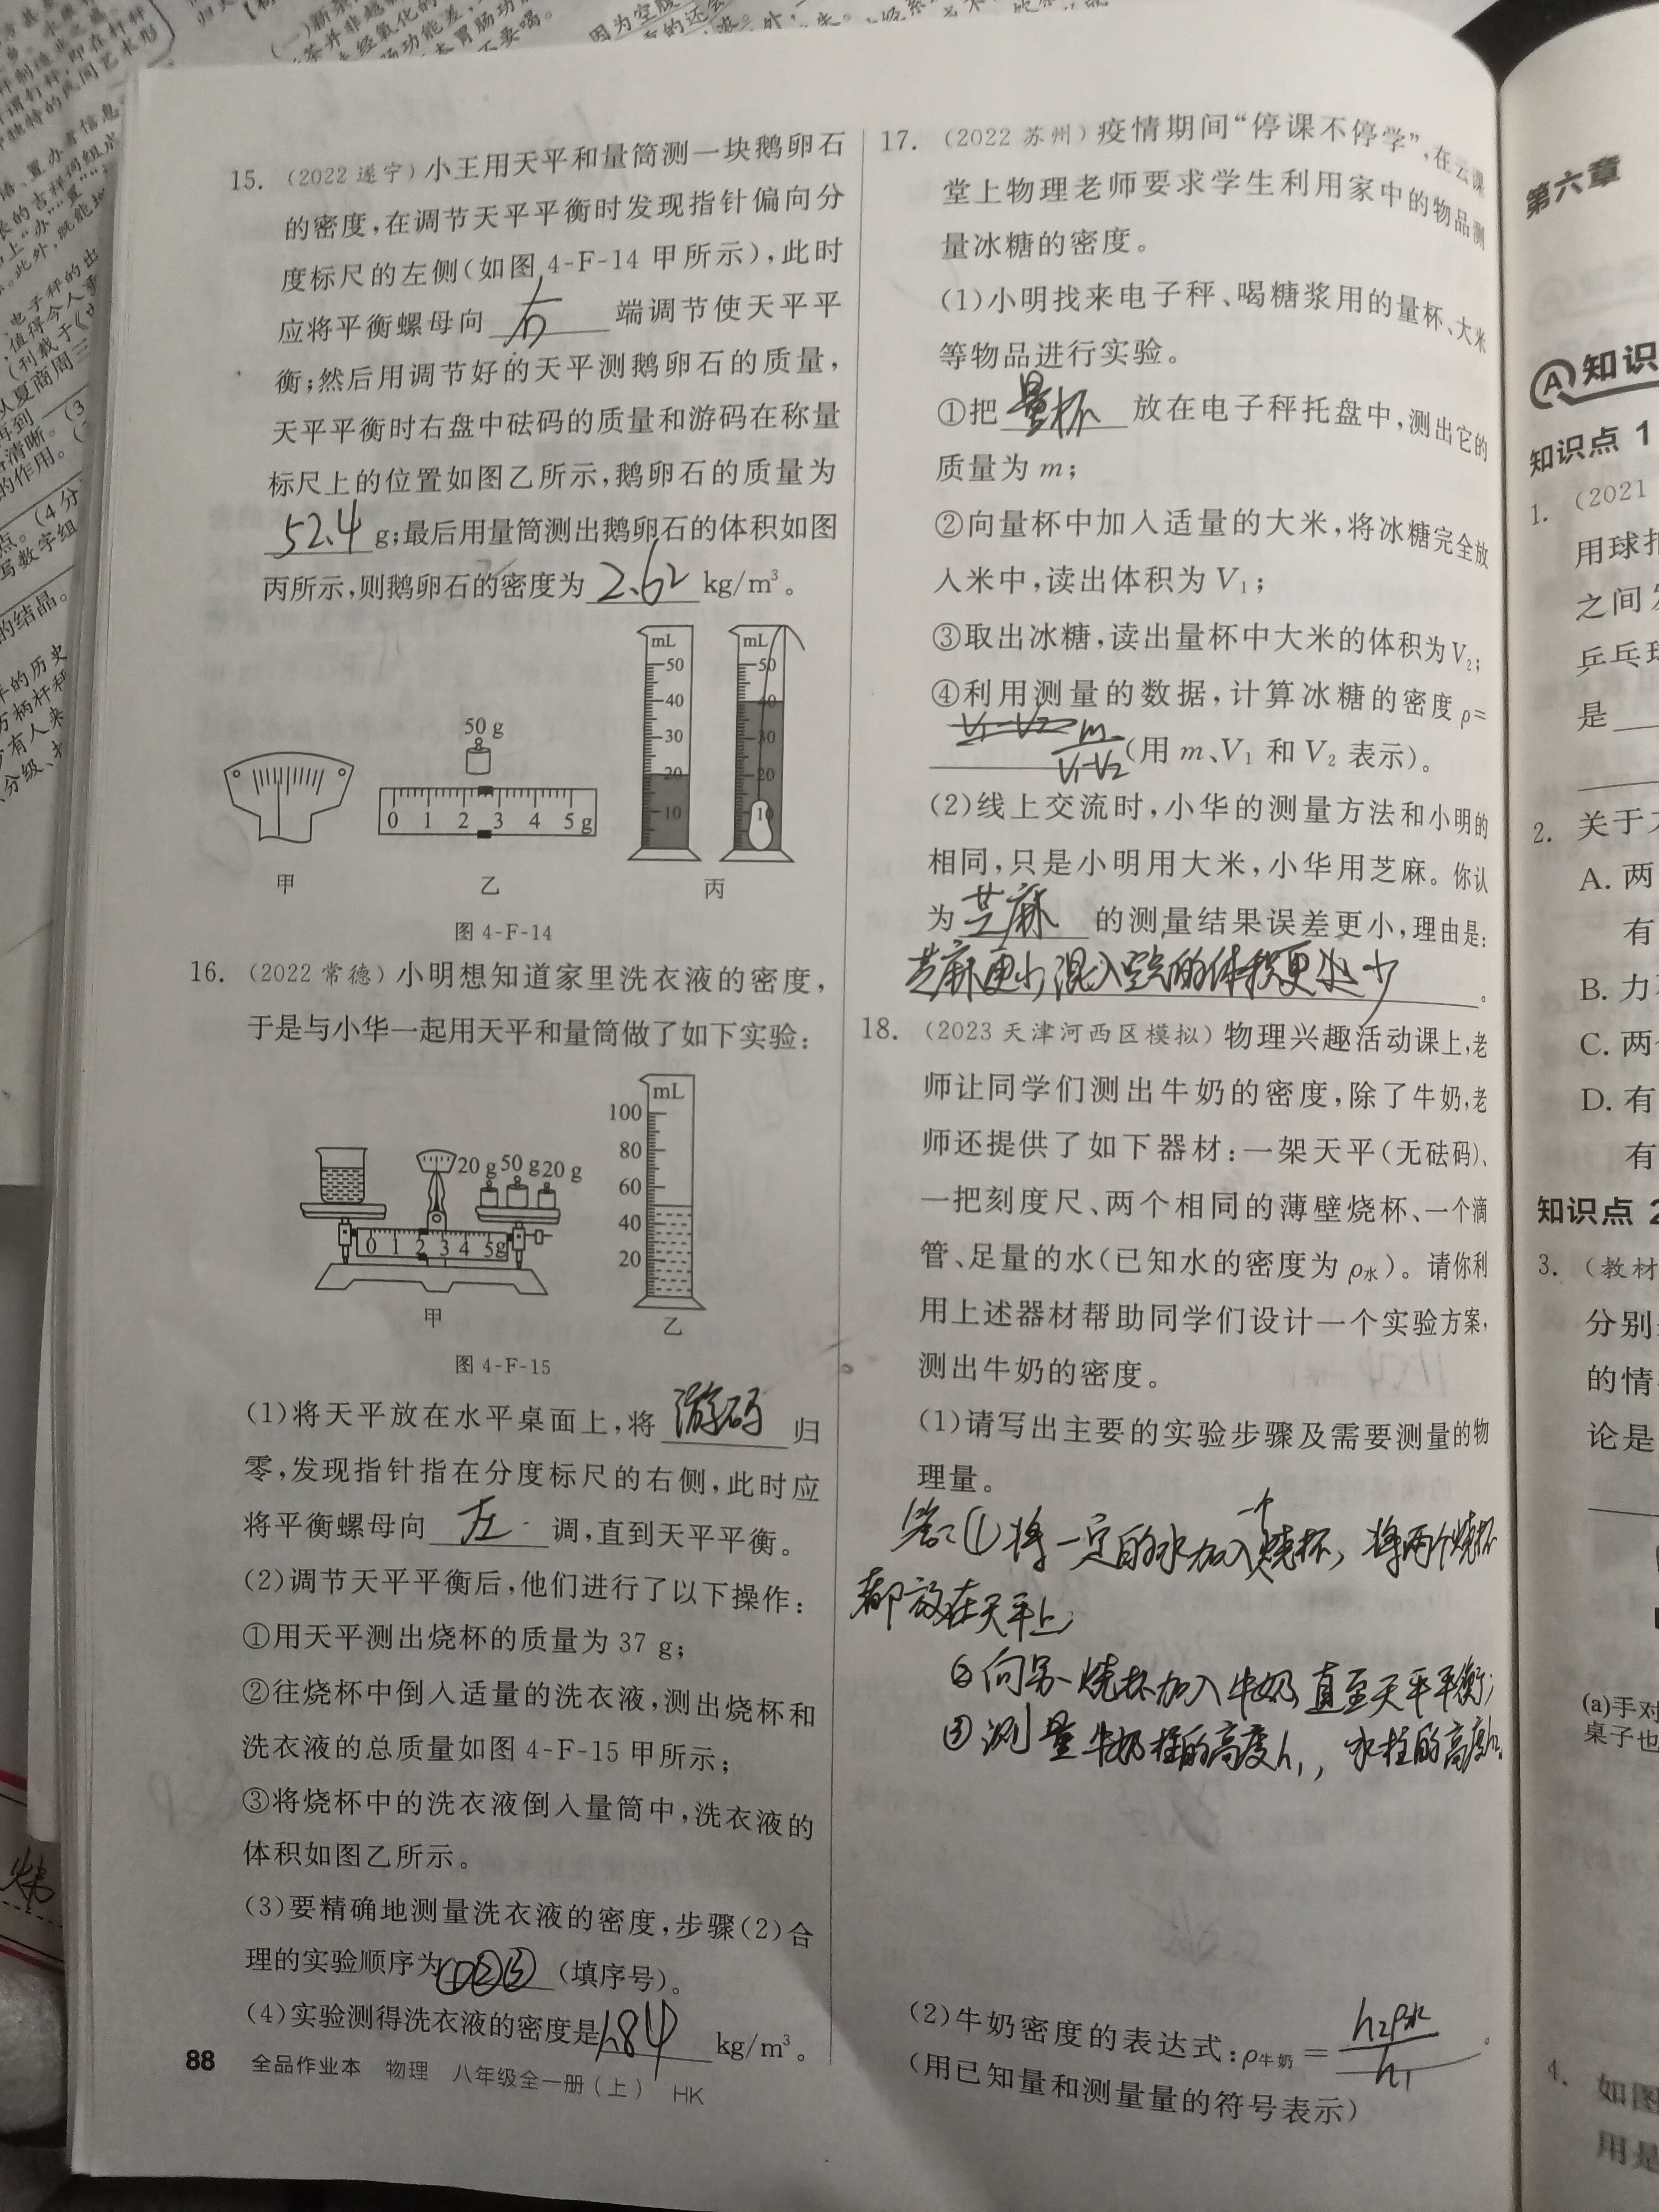 15. (2022 遂宁)小王用天平和量筒测一块鹅卵石
的密度,在调节天平平衡时发现指针偏向分
度标尺的左侧(如图 4-F-14 甲所示),此时
应将平衡螺母向 右 端调节使天平平
衡;然后用调节好的天平测鹅卵石的质量,
天平平衡时右盘中砝码的质量和游码在称量
标尺上的位置如图乙所示,鹅卵石的质量为
52.4 g;最后用量筒测出鹅卵石的体积如图
丙所示,则鹅卵石的密度为 2.62 kg/m³。
50 g
0 1 2 3 4 5 g
mL
50
40
30
20
10
mL
50
40
30
20
10
甲 乙 丙
图 4-F-14
16. (2022 常德)小明想知道家里洗衣液的密度,
于是与小华一起用天平和量筒做了如下实验:
20 g 50 g 20 g
0 1 2 3 4 5g
mL
100
80
60
40
20
甲 乙
图 4-F-15
(1)将天平放在水平桌面上,将 游码 归
零,发现指针指在分度标尺的右侧,此时应
将平衡螺母向 左 调,直到天平平衡。
(2)调节天平平衡后,他们进行了以下操作:
①用天平测出烧杯的质量为 37 g;
②往烧杯中倒入适量的洗衣液,测出烧杯和
洗衣液的总质量如图 4-F-15 甲所示;
③将烧杯中的洗衣液倒入量筒中,洗衣液的
体积如图乙所示。
(3)要精确地测量洗衣液的密度,步骤(2)合
理的实验顺序为 ①②③ (填序号)。
(4)实验测得洗衣液的密度是 1.84 kg/m³。
88 全品作业本 物理 八年级全一册(上) HK
17. (2022 苏州)疫情期间“停课不停学”,在云课
堂上物理老师要求学生利用家中的物品测
量冰糖的密度。
(1)小明找来电子秤、喝糖浆用的量杯、大米
等物品进行实验。
①把 量杯 放在电子秤托盘中,测出它的
质量为 m;
②向量杯中加入适量的大米,将冰糖完全放
入米中,读出体积为 V₁;
③取出冰糖,读出量杯中大米的体积为V₂;
④利用测量的数据,计算冰糖的密度 ρ=
V₁-V₂
m/(V₁-V₂) (用 m、V₁ 和 V₂ 表示)。
(2)线上交流时,小华的测量方法和小明的
相同,只是小明用大米,小华用芝麻。你认
为 芝麻 的测量结果误差更小,理由是:
芝麻更小,混入空气的体积更 少 。
18. (2023 天津河西区模拟)物理兴趣活动课上,老
师让同学们测出牛奶的密度,除了牛奶,老
师还提供了如下器材:一架天平(无砝码)、
一把刻度尺、两个相同的薄壁烧杯、一个滴
管、足量的水(已知水的密度为 ρ水)。请你利
用上述器材帮助同学们设计一个实验方案,
测出牛奶的密度。
(1)请写出主要的实验步骤及需要测量的物
理量。
答:①将一定的水加入个烧杯,将两个烧杯
都放在天平上;
②向另一烧杯加入牛奶,直至天平平衡;
③测量牛奶柱的高度h₁,水柱的高度h₂。
(2)牛奶密度的表达式:ρ牛奶= h₂ρ水/h₁ 。
(用已知量和测量量的符号表示)
第六章
A 知识
知识点 1
1. (2021
用球拍
之间
乒乓球
是
2. 关于
A. 两
有
B. 力
C. 两
D. 有
有
知识点 2
3. (教材
分别
的情
论是
(a)手对
桌子也
4. 如图
用是